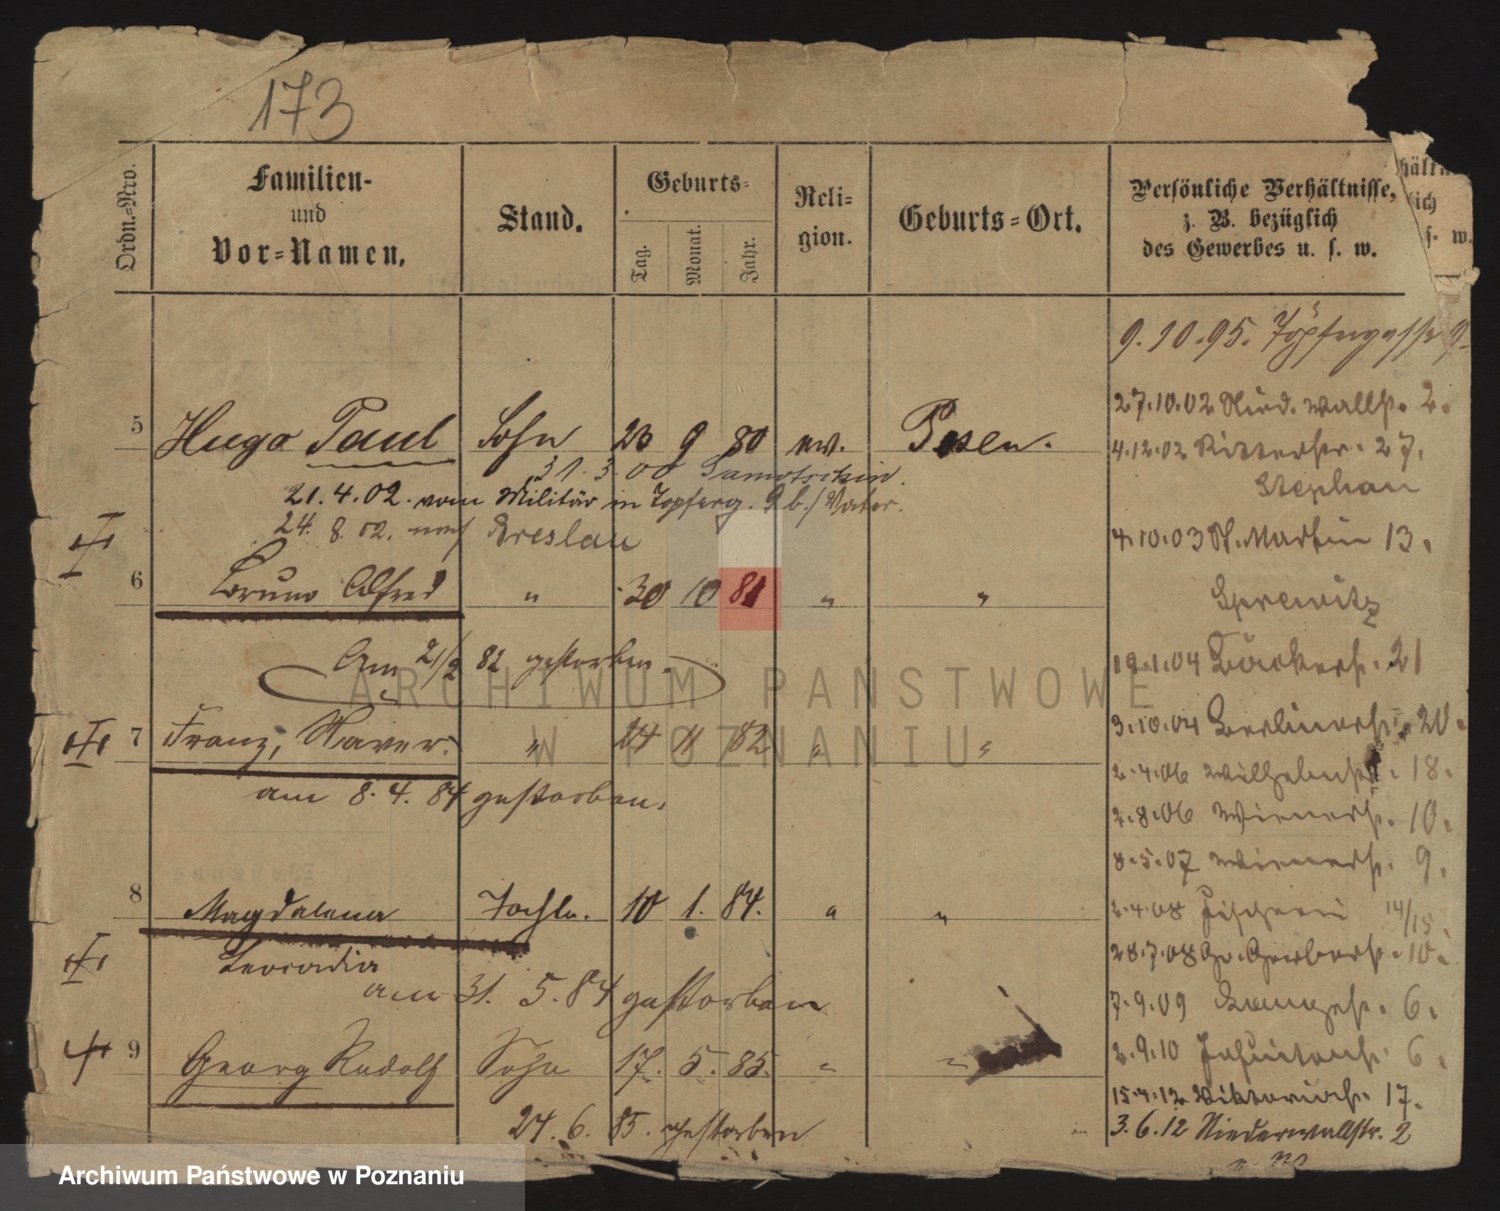 173
Ordn.-Nro.
Familien-
und
Vor-Namen.
Stand.
Geburts-
Tag.
Monat.
Jahr.
Reli-
gion.
Geburts-Ort.
Persönliche Verhältnisse,
z. B. bezüglich
des Gewerbes u. s. w.
hältn
lich
s. w.
9.10.95. Töpfergasse 9
5 Hugo Paul Sohn 23 9 80 ev. Posen.
31.3.00 Samotschin.
21.4.02. vom Militär in Töpferg. 9 b./Vater.
24. 8. 02. nach Breslau
6 Bruno Alfred " 30 10 81 " "
Am 21/2 82 gestorben.
7 Franz, Xaver. " 24 11 82 " "
am 8.4.84 gestorben.
8 Magdalena Tochter. 10 1. 84. " "
Leocadia
am 31. 5. 84 gestorben
9 Georg Rudolf Sohn 17. 5. 85. " "
24. 6. 85. gestorben
27.10.02 Nied. wallstr. 2.
4.12.02 Ritterstr. 27.
Stephan
4.10.03 St. Martin 13.
19.1.04 Bäckerstr. 21
3.10.04 Berlinerstr. 20.
2.4.06 Wilhelmstr. 18.
2.8.06 Wienerstr. 10.
8.5.07 Wienerstr. 9.
2.4.08 Fischerei 14/15.
28.7.08 Gr. Gerberstr. 10.
7.9.09 Langestr. 6.
2.9.10 Jesuitenstr. 6.
15.4.12 Viktoriastr. 17.
3.6.12 Niederwallstr. 2
ARCHIWUM PAŃSTWOWE
W POZNANIU
Archiwum Państwowe w Poznaniu